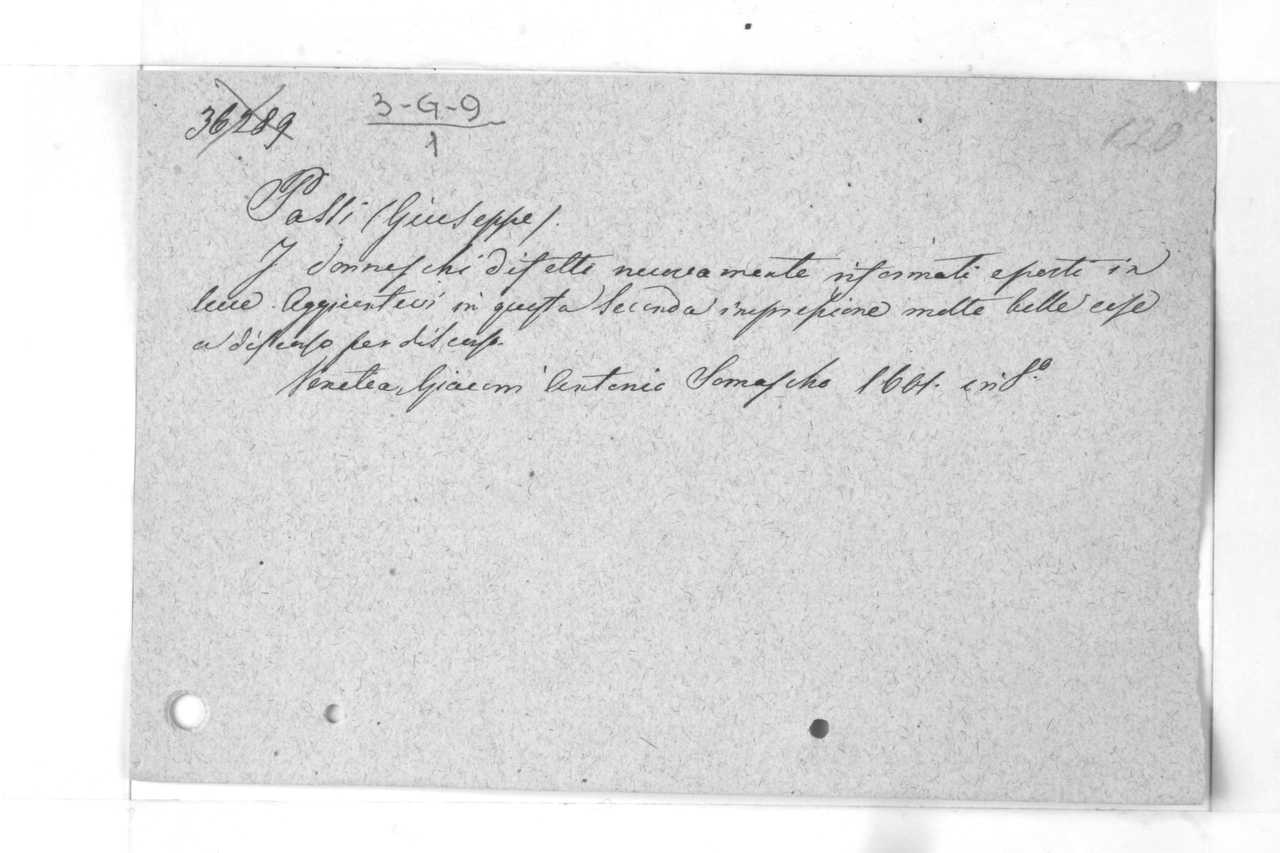 36289 3-G-9
1
Passi (Giuseppe).
I donneschi difetti nuovamente riformati e posti in
luce. Aggiuntovi in questa seconda impressione molte belle cose
a discorso per discorso.
Venetia, Giacom Antonio Somascho 1601. in 8.º